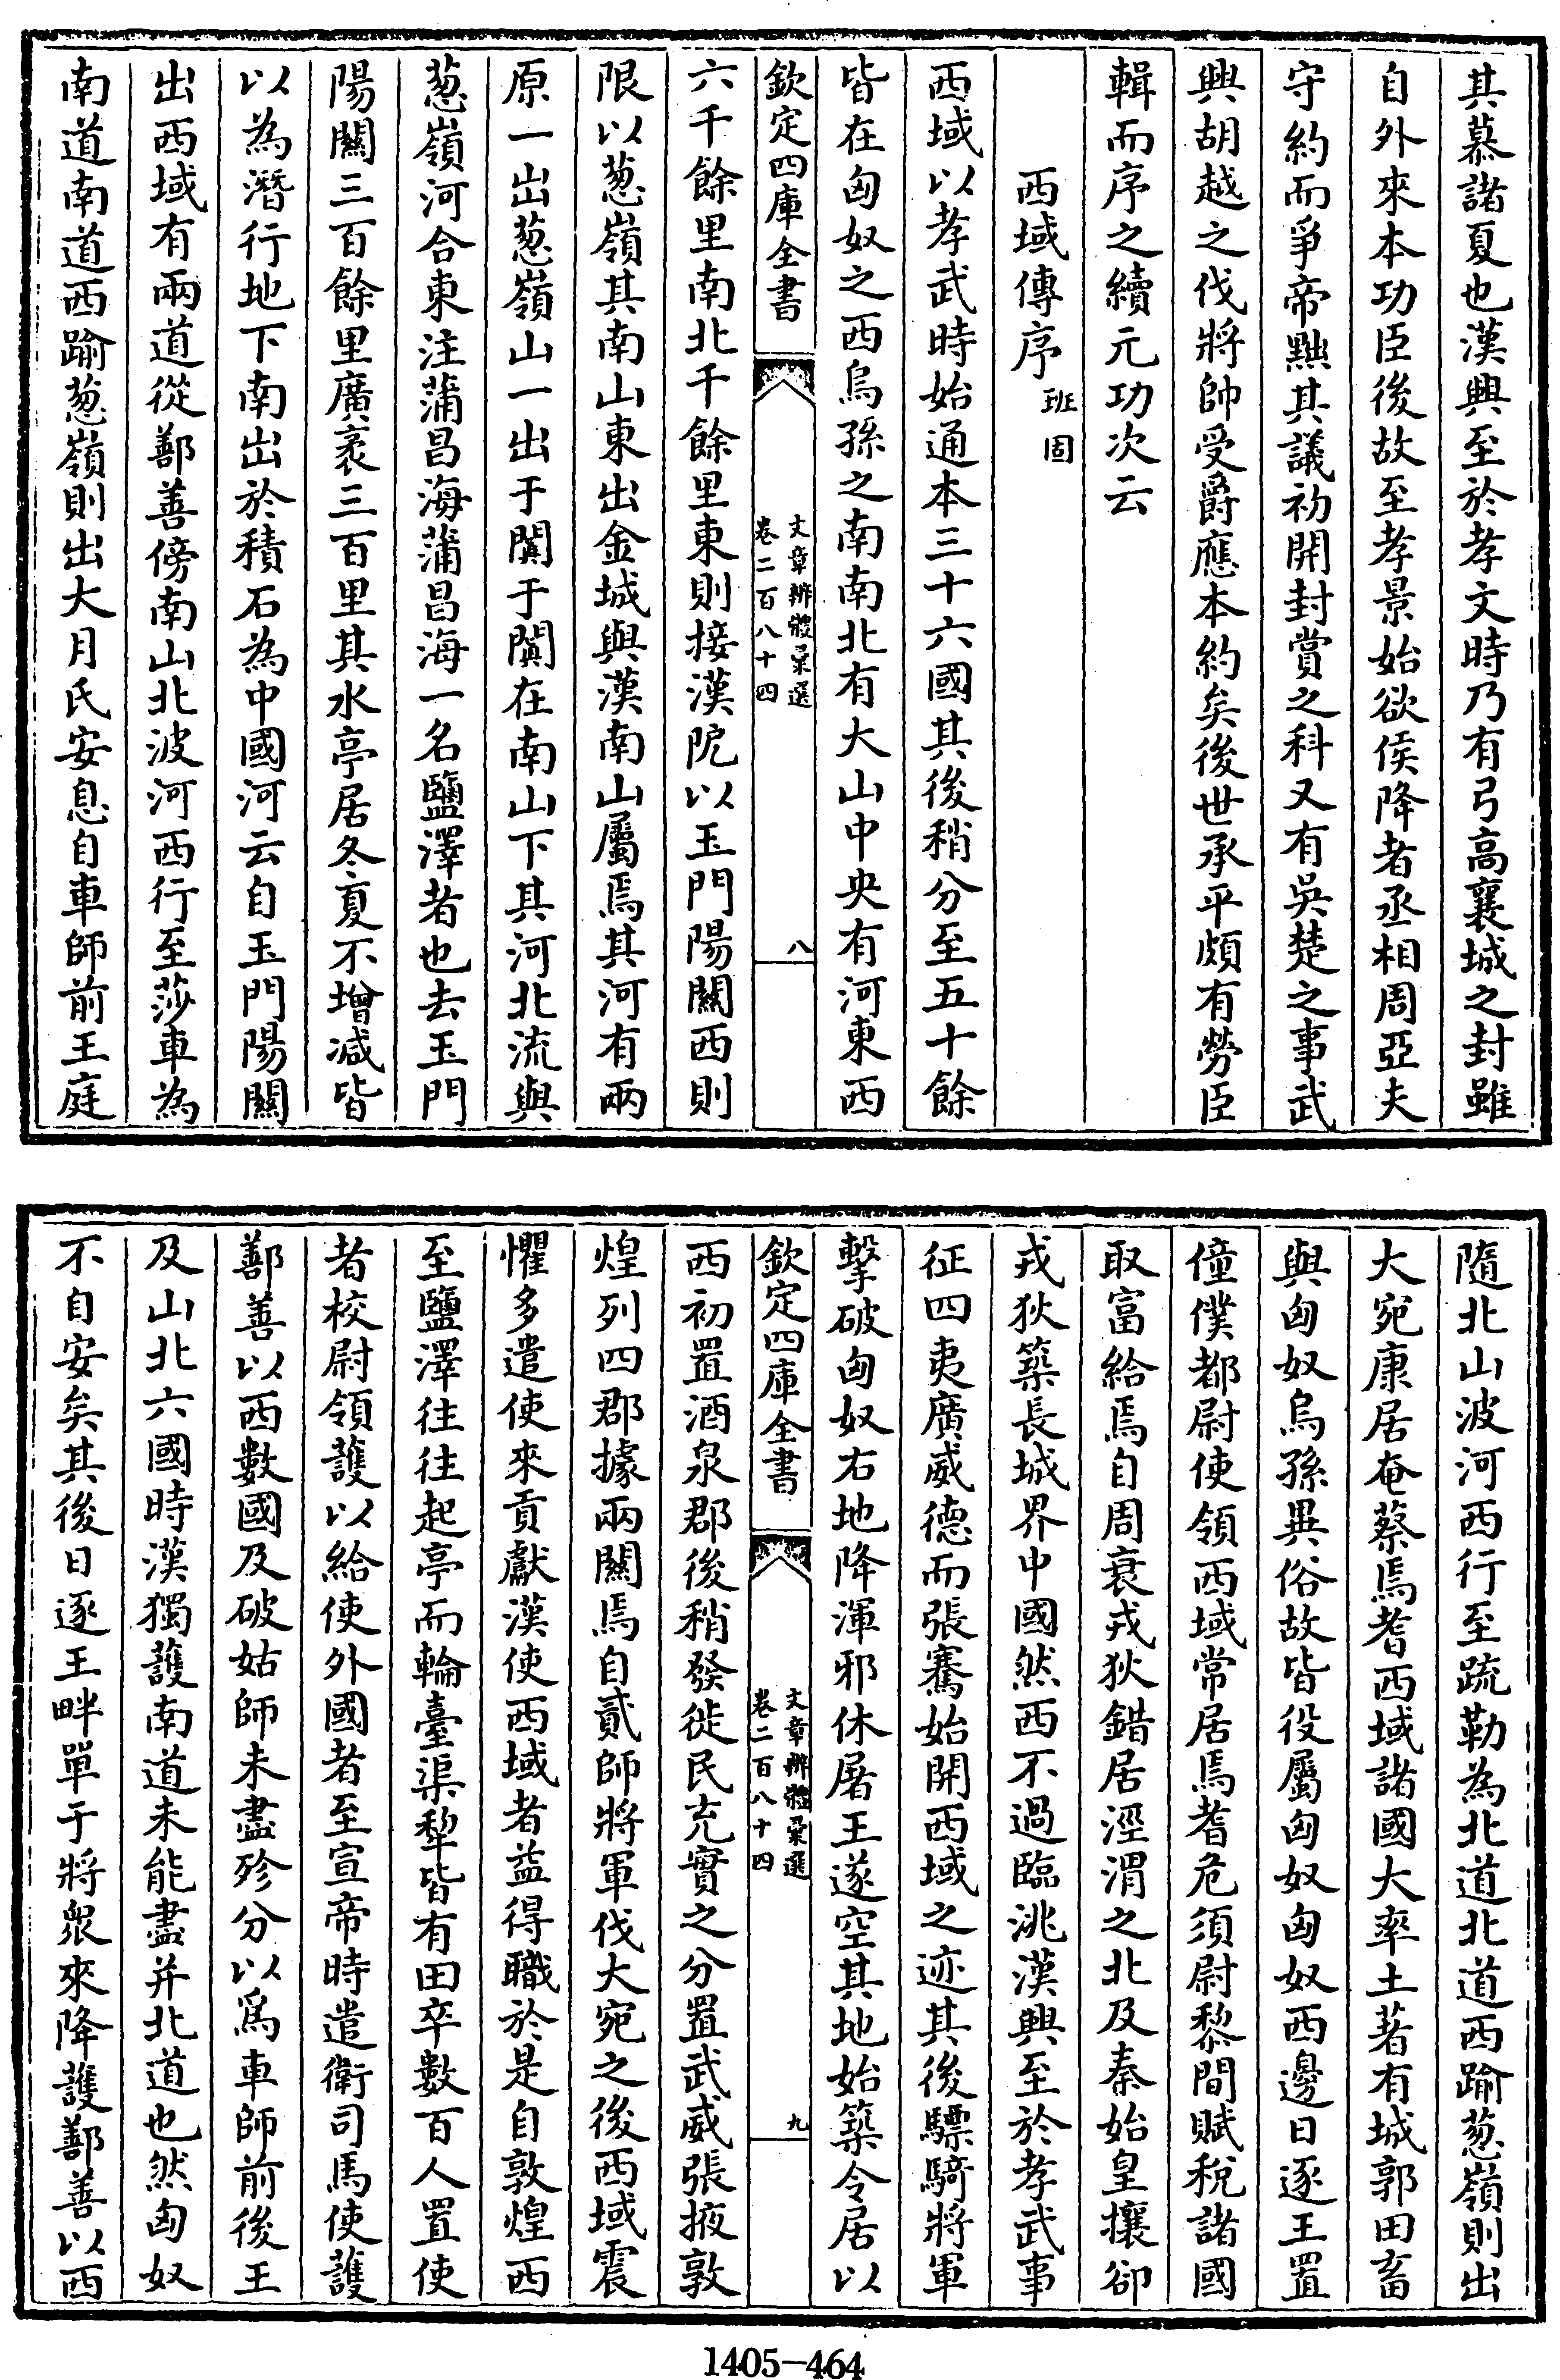 其慕諸夏也漢興至於孝文時乃有弓高襄城之封雖
自外來本功臣後故至孝景始欲侯降者丞相周亞夫
守約而爭帝黜其議初開封賞之科又有吳楚之事武
興胡越之伐將帥受爵應本約矣後世承平頗有勞臣
輯而序之續元功次云
西域傳序 班固
西域以孝武時始通本三十六國其後稍分至五十餘
皆在匈奴之西烏孫之南南北有大山中央有河東西
欽定四庫全書
文章辨體彙選
卷二百八十四
八
六千餘里南北千餘里東則接漢阸以玉門陽關西則
限以葱嶺其南山東出金城與漢南山屬焉其河有兩
原一出葱嶺山一出于闐于闐在南山下其河北流與
葱嶺河合東注蒲昌海蒲昌海一名鹽澤者也去玉門
陽關三百餘里廣袤三百里其水亭居冬夏不增減皆
以為潛行地下南出於積石為中國河云自玉門陽關
出西域有兩道從鄯善傍南山北波河西行至莎車為
南道南道西踰葱嶺則出大月氏安息自車師前王庭
隨北山波河西行至疏勒為北道北道西踰葱嶺則出
大宛康居奄蔡焉耆西域諸國大率土著有城郭田畜
與匈奴烏孫異俗故皆役屬匈奴匈奴西邊日逐王置
僮僕都尉使領西域常居焉耆危須尉黎間賦稅諸國
取富給焉自周衰戎狄錯居涇渭之北及秦始皇攘卻
戎狄築長城界中國然西不過臨洮漢興至於孝武事
征四夷廣威德而張騫始開西域之迹其後驃騎將軍
擊破匈奴右地降渾邪休屠王遂空其地始築令居以
欽定四庫全書
文章辨體彙選
卷二百八十四
九
西初置酒泉郡後稍發徙民充實之分置武威張掖敦
煌列四郡據兩關焉自貳師將軍伐大宛之後西域震
懼多遣使來貢獻漢使西域者益得職於是自敦煌西
至鹽澤往往起亭而輪臺渠犂皆有田卒數百人置使
者校尉領護以給使外國者至宣帝時遣衛司馬使護
鄯善以西數國及破姑師未盡殄分以爲車師前後王
及山北六國時漢獨護南道未能盡并北道也然匈奴
不自安矣其後日逐王畔單于將衆來降護鄯善以西
1405-464